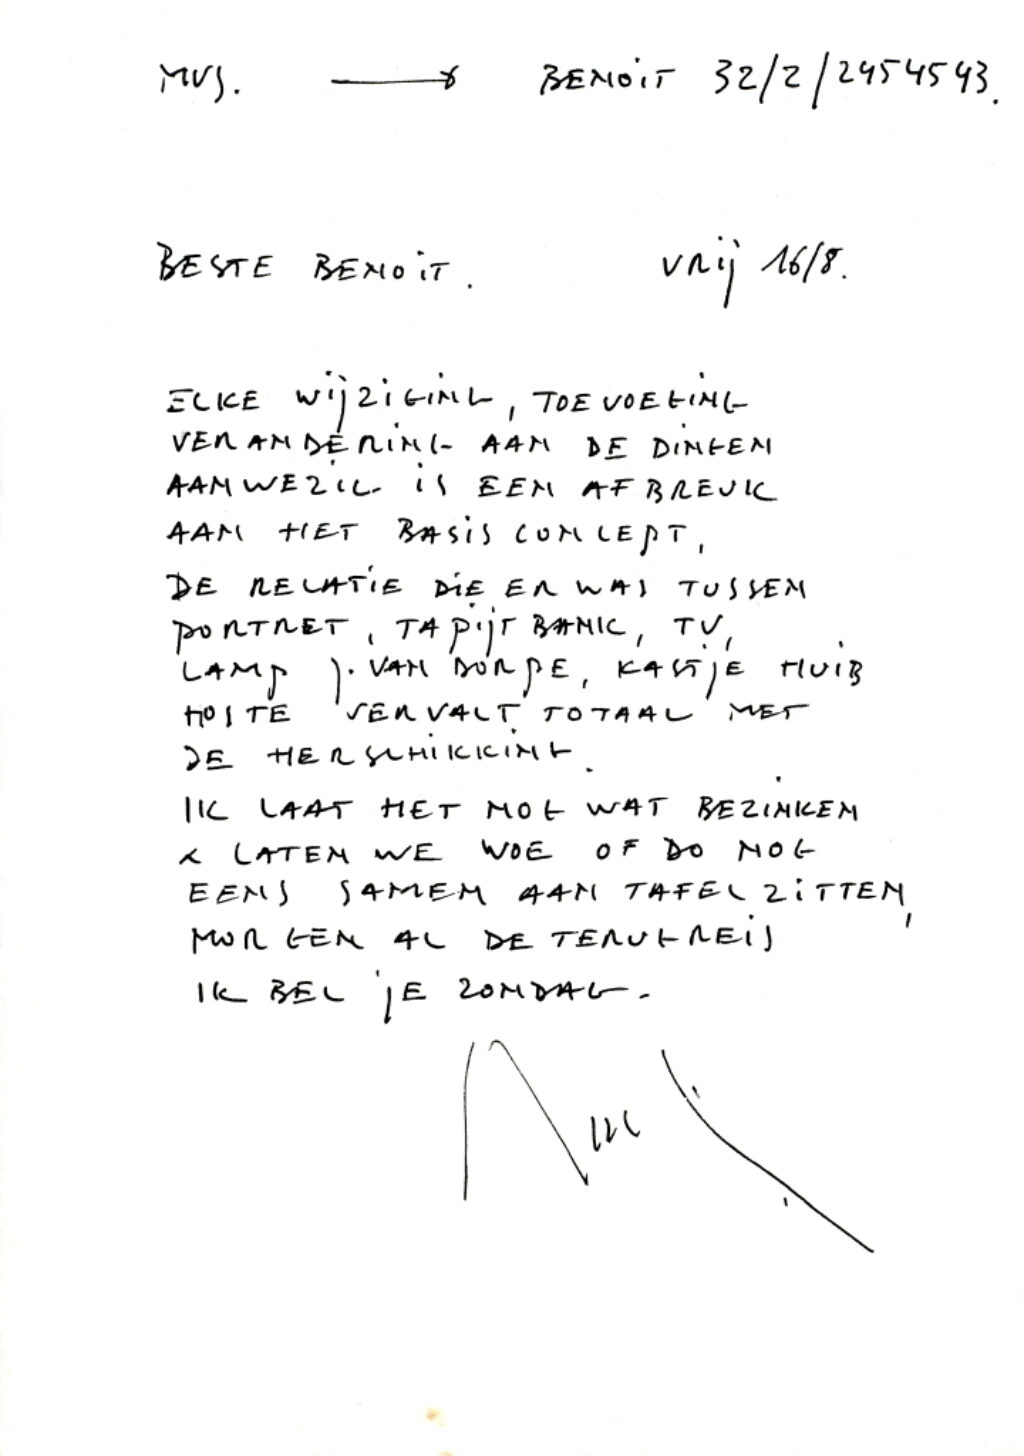 MVS. → BENOiT 32/2/2454543.
BESTE BENOiT. VRij 16/8.
ELKE WijZiGiNG, TOEVOEGiNG
VERANDERiNG AAN DE DiNGEN
AANWEZiG iS EEN AFBREUK
AAN HET BASiS CONCEPT,
DE RELATiE DiE ER WAS TUSSEN
PORTRET, TAPijT BANK, TV,
LAMP J. VAN DORPE, KASTjE HUiB
HOSTE VERVALT TOTAAL MET
DE HERSCHiKKiNG.
IK LAAT HET NOG WAT BEZiNKEN
& LATEN WE WOE OF DO NOG
EENS SAMEN AAN TAFEL ZiTTEN,
MORGEN AL DE TERUGREiS
IK BEL jE ZONDAG.